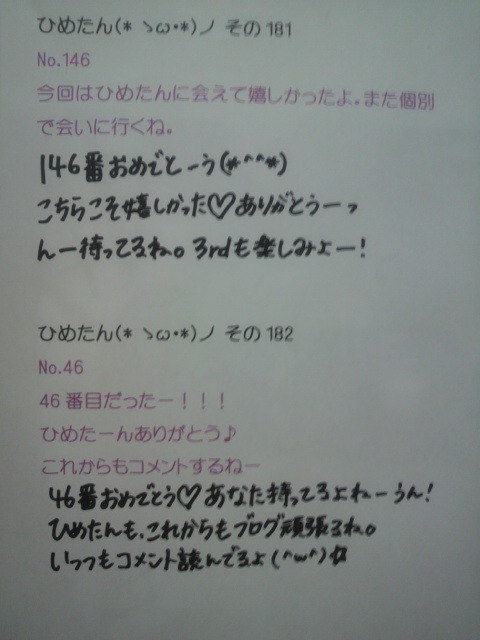 ひめたん(* ゝω・*)ノ その181
No.146
今回はひめたんに会えて嬉しかったよ。また個別
で会いに行くね。
146番おめでとーう(*^^*)
こちらこそ嬉しかった♡ありがとうーっ
んー待ってるね。3rdも楽しみよー!
ひめたん(* ゝω・*)ノ その182
No.46
46番目だったー!!!
ひめたーんありがとう♪
これからもコメントするねー
46番おめでとう♡あなた持ってるよねーうん!
ひめたんも、これからもブログ頑張るね。
いっつもコメント読んでるよ(^w^)☆